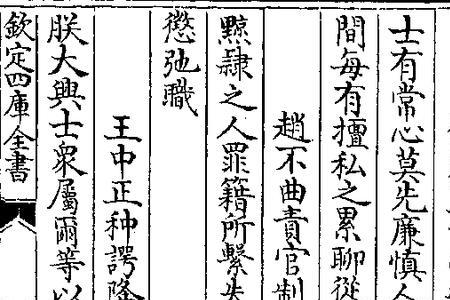 士有常心莫先廉慎人
間每有擅私之累聊從
趙不曲責官制
黥隷之人罪籍所繫失
懲弛職
王中正种諤降
朕大興士衆屬爾等以
欽定四庫全書